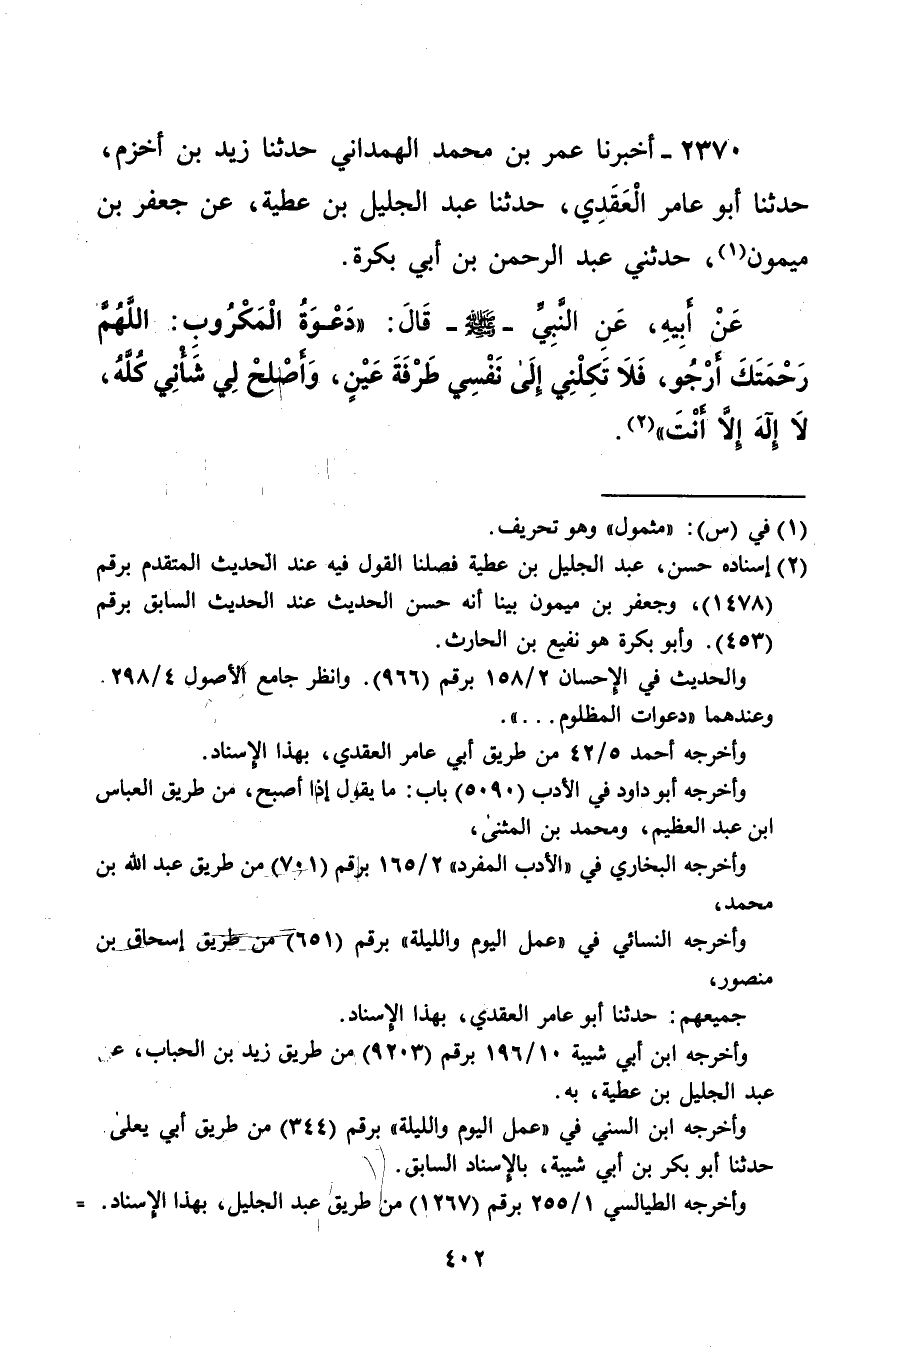 ٢٣٧٠ - أخبرنا عمر بن محمد الهمداني حدثنا زيد بن أخزم،
حدثنا أبو عامر الْعَقَدِي، حدثنا عبد الجليل بن عطية، عن جعفر بن
ميمون(١)، حدثني عبد الرحمن بن أبي بكرة.
عَنْ أَبِيهِ، عَنِ النَّبِيِّ - ﷺ - قَالَ: «دَعْوَةُ الْمَكْرُوبِ: اللَّهُمَّ
رَحْمَتَكَ أَرْجُو، فَلَا تَكِلْنِي إِلَىٰ نَفْسِي طَرْفَةَ عَيْنٍ، وَأَصْلِحْ لِي شَأْنِي كُلَّهُ،
لَا إِلَهَ إِلَّا أَنْتَ»(٢).
(١) في (س): «مثمول» وهو تحريف.
(٢) إسناده حسن، عبد الجليل بن عطية فصلنا القول فيه عند الحديث المتقدم برقم
(١٤٧٨)، وجعفر بن ميمون بينا أنه حسن الحديث عند الحديث السابق برقم
(٤٥٣). وأبو بكرة هو نفيع بن الحارث.
والحديث في الإحسان ١٥٨/٢ برقم (٩٦٦). وانظر جامع الأصول ٢٩٨/٤.
وعندهما «دعوات المظلوم...».
وأخرجه أحمد ٤٢/٥ من طريق أبي عامر العقدي، بهذا الإسناد.
وأخرجه أبو داود في الأدب (٥٠٩٠) باب: ما يقول إذا أصبح، من طريق العباس
ابن عبد العظيم، ومحمد بن المثنىٰ،
وأخرجه البخاري في «الأدب المفرد» ١٦٥/٢ برقم (٧٠١) من طريق عبد الله بن
محمد،
وأخرجه النسائي في «عمل اليوم والليلة» برقم (٦٥١) من طريق إسحاق بن
منصور،
جميعهم: حدثنا أبو عامر العقدي، بهذا الإسناد.
وأخرجه ابن أبي شيبة ١٩٦/١٠ برقم (٩٢٠٣) من طريق زيد بن الحباب، عن
عبد الجليل بن عطية، به.
وأخرجه ابن السني في «عمل اليوم والليلة» برقم (٣٤٤) من طريق أبي يعلىٰ
حدثنا أبو بكر بن أبي شيبة، بالإسناد السابق.
وأخرجه الطيالسي ٢٥٥/١ برقم (١٢٦٧) من طريق عبد الجليل، بهذا الإسناد. =
٤٠٢